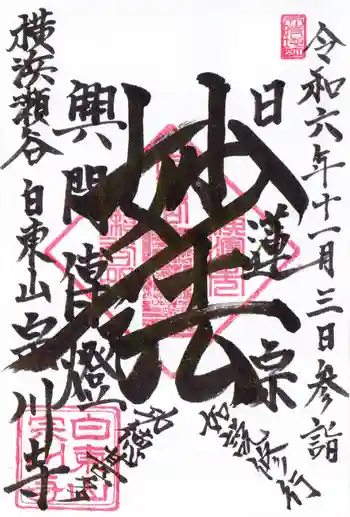 令和六年十一月三日参詣
日蓮宗
妙法
興門傳燈
横浜瀬谷
白東山宗川寺
如説修行